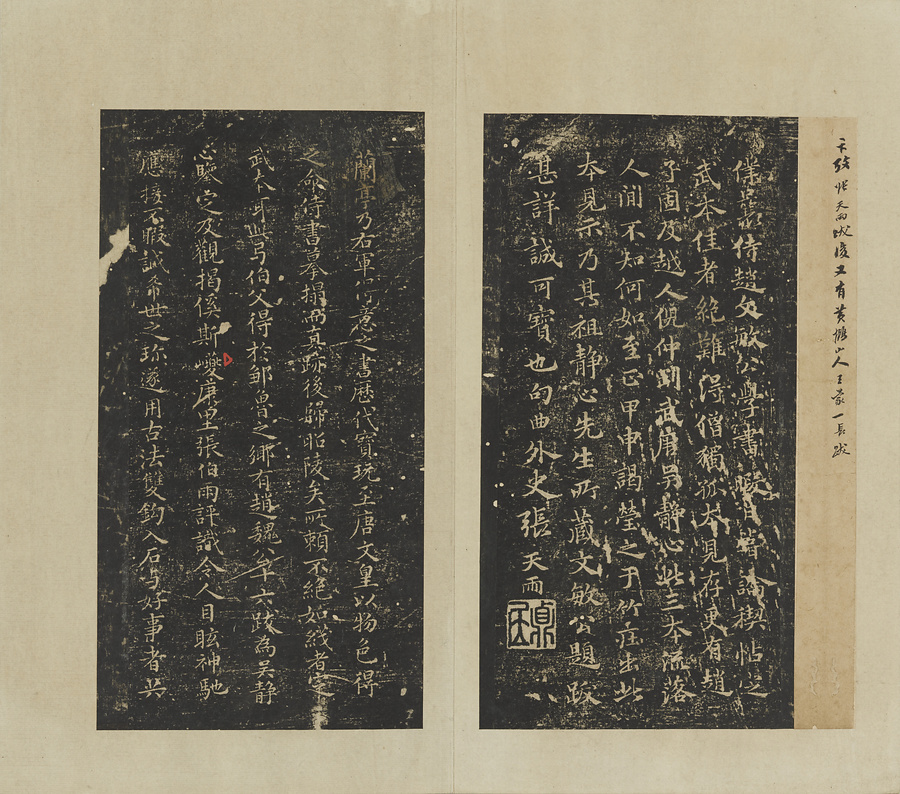 卞跋张天雨跋後又有黄鶴山人王蒙一長跋
僕嘗侍趙文敏公學書暇日嘗論稧帖定
武本佳者絶難得僧獨孤本見存更有趙
子固及越人倪仲剛武唐吴静心此三本流落
人間不知何如至正甲申謁瑩之于竹庄出此
本見示乃其祖静心先生所藏文敏公題跋
甚詳誠可寶也句曲外史張天雨
蘭亭乃右軍得意之書歷代寶玩至唐文皇以物色得
之命侍書摹搨而真跡後歸昭陵矣所頼不絶如綫者定
武本耳此馬伯父得於鄒魯之鄉有趙魏公卒六跋為吴静
心鑒定及觀揭傒斯夔庚里張伯雨評識令人目眩神馳
應接不暇誠希世之珎遂用古法雙鉤入石与好事者共